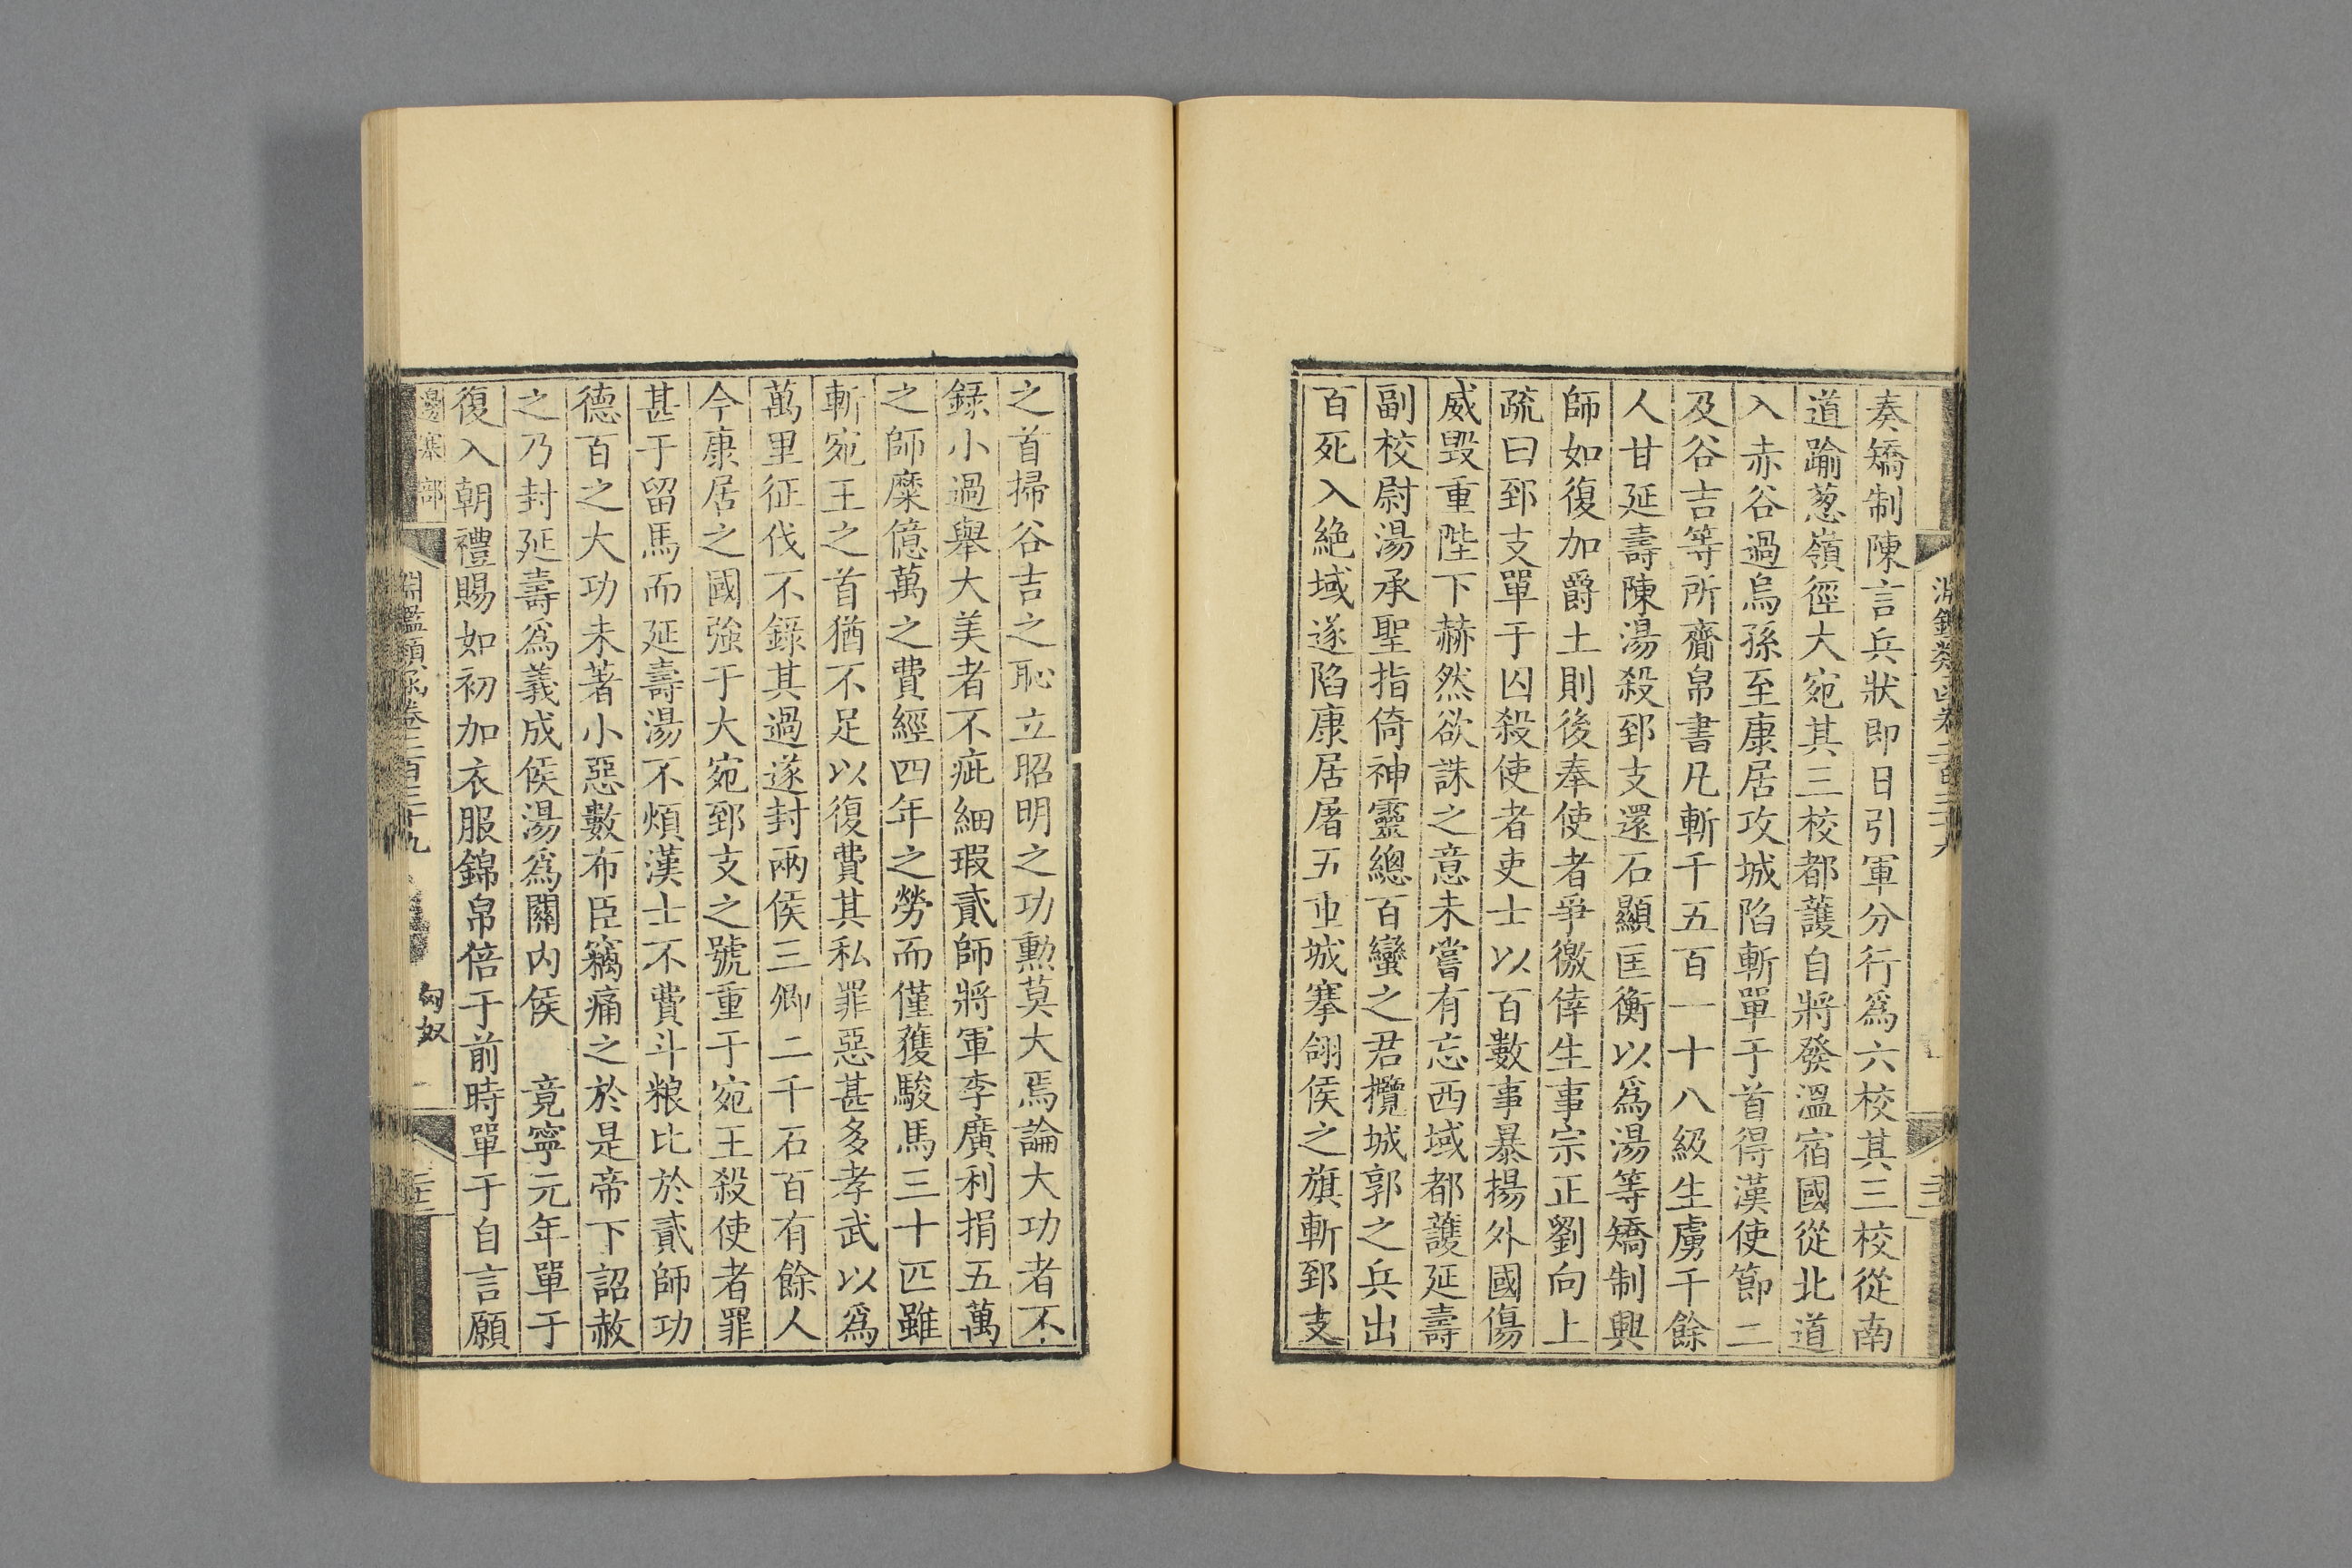 奏矯制陳言兵狀即日引軍分行爲六校其三校從南
道踰葱嶺徑大宛其三校都護自將發溫宿國從北道
入赤谷過烏孫至康居攻城陷斬單于首得漢使節二
及谷吉等所齎帛書凡斬千五百一十八級生虜千餘
人甘延壽陳湯殺郅支還石顯匡衡以爲湯等矯制興
師如復加爵土則後奉使者爭徼倖生事宗正劉向上
疏曰郅支單于囚殺使者吏士以百數事暴揚外國傷
威毀重陛下赫然欲誅之意未嘗有忘西域都護延壽
副校尉湯承聖指倚神靈總百蠻之君攬城郭之兵出
百死入絶域遂陷康居屠五重城搴翖侯之旗斬郅支
之首掃谷吉之恥立昭明之功勲莫大焉論大功者不
録小過舉大美者不疵細瑕貳師將軍李廣利捐五萬
之師糜億萬之費經四年之勞而僅獲駿馬三十匹雖
斬宛王之首猶不足以復費其私罪惡甚多孝武以爲
萬里征伐不錄其過遂封兩侯三卿二千石百有餘人
今康居之國強于大宛郅支之號重于宛王殺使者罪
甚于留馬而延壽湯不煩漢士不費斗粮比於貳師功
德百之大功未著小惡數布臣竊痛之於是帝下詔赦
之乃封延壽爲義成侯湯爲關内侯　竟寧元年單于
復入朝禮賜如初加衣服錦帛倍于前時單于自言願
邊塞部
淵鑑類函卷二百三十九
匈奴